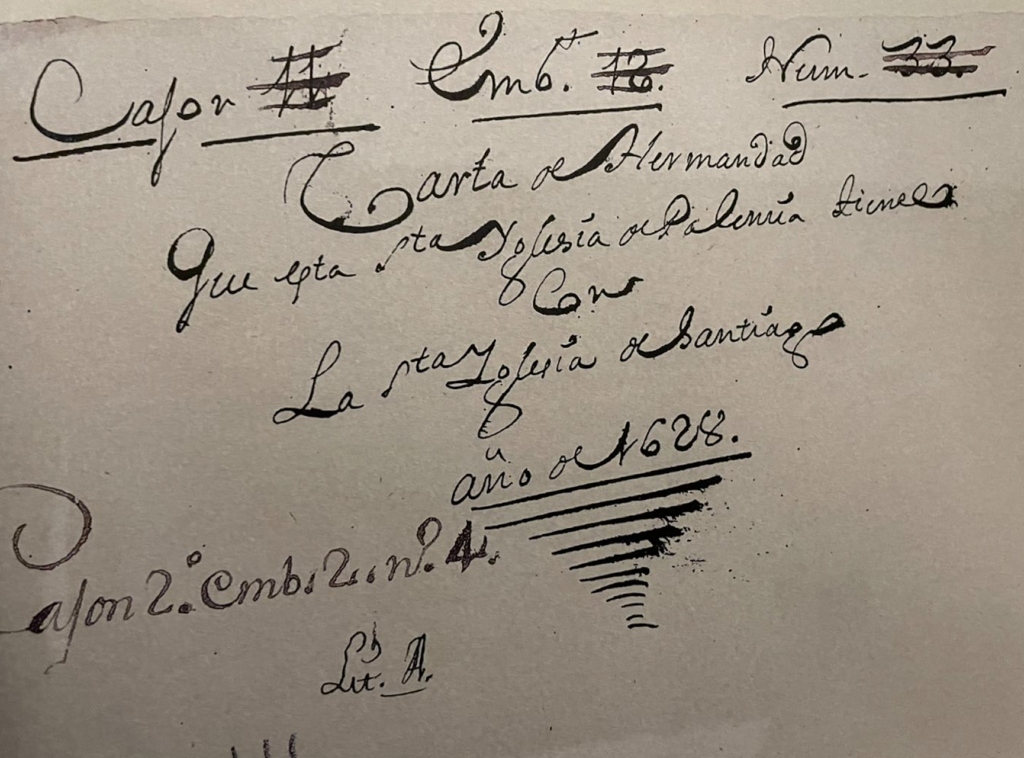 Cajon 11 Emb.t 13. Num. 33.
Carta de Hermandad
Que esta sta Yglesia de Palencia tiene
Con
La sta Yglesia de Santiago
año de 1628.
Cajon 2.º Emb. 2. nº. 4.
Lit. A.